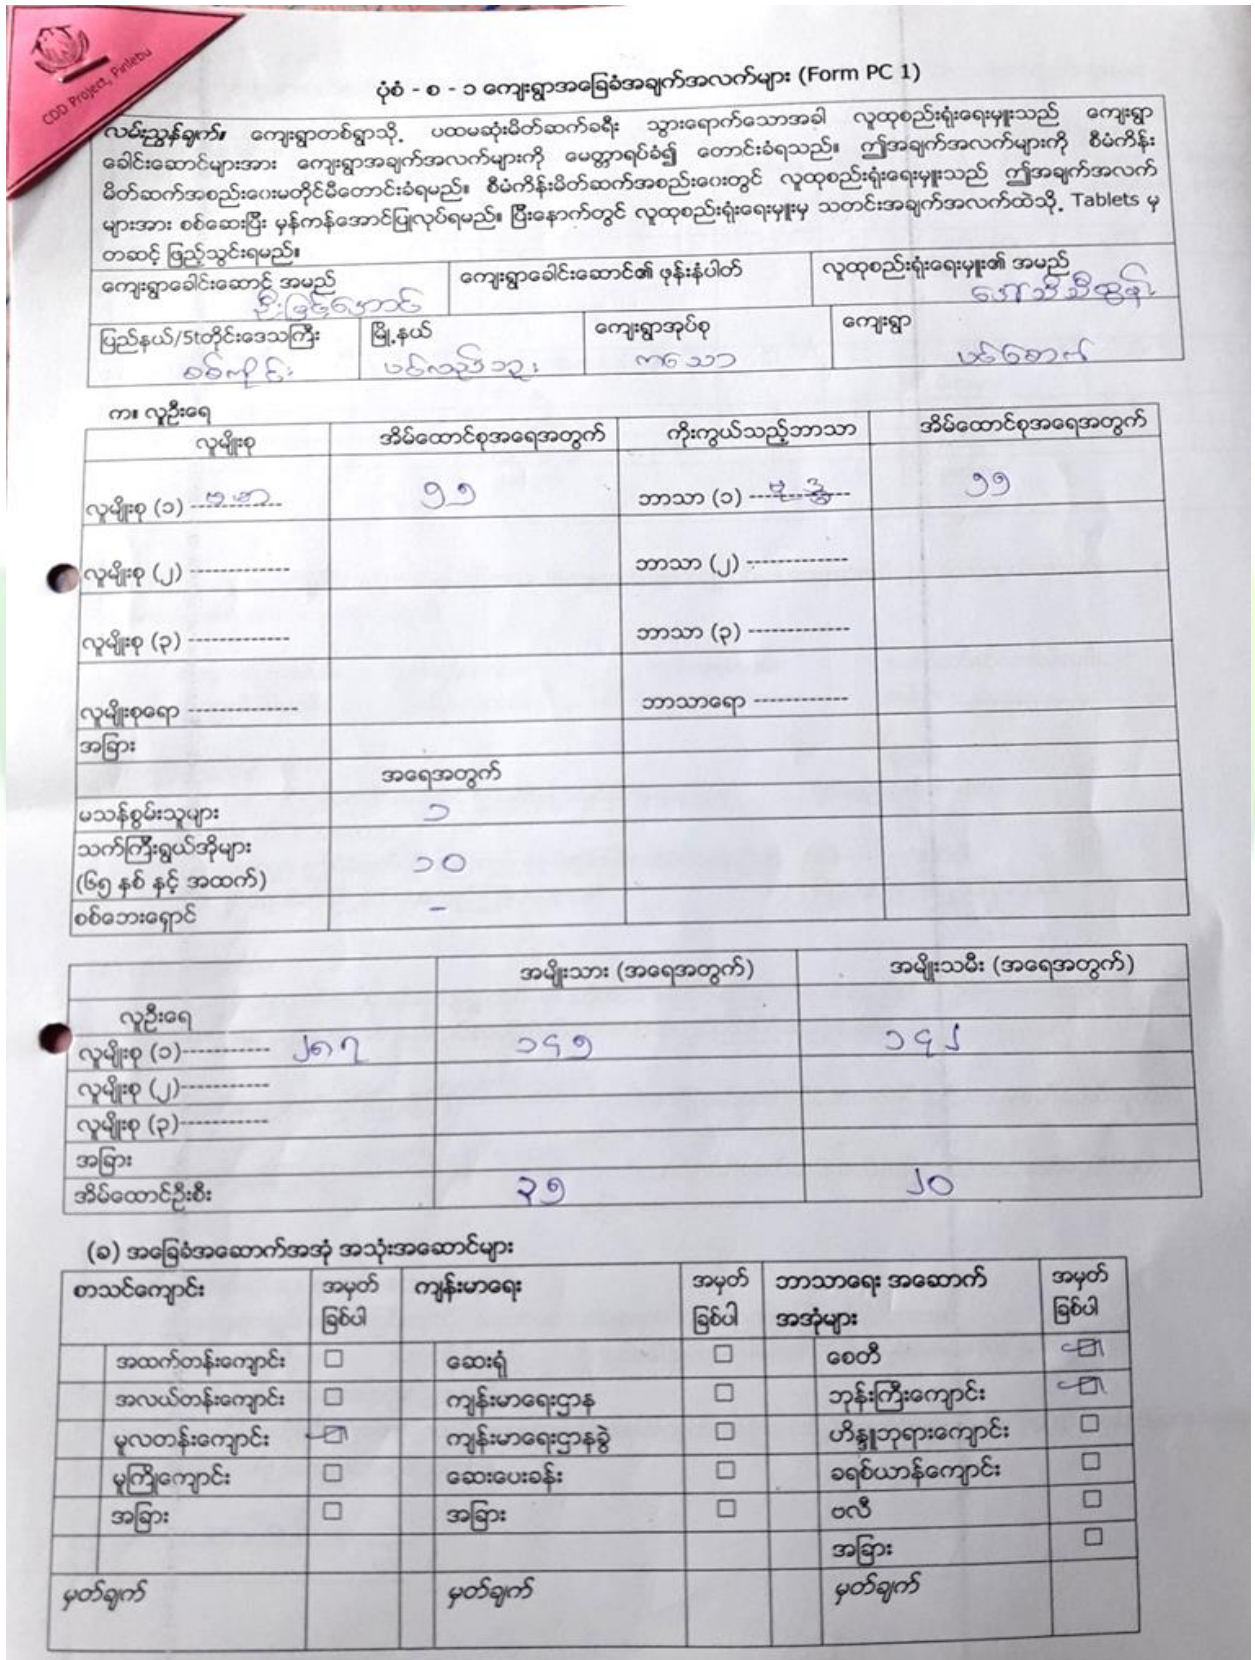 CDD Project, Pinlebu
ပုံစံ - စ - ၁ ကျေးရွာအခြေခံအချက်အလက်များ (Form PC 1)
လမ်းညွှန်ချက်။ ကျေးရွာတစ်ရွာသို့ ပထမဆုံးမိတ်ဆက်ခရီး သွားရောက်သောအခါ လူထုစည်းရုံးရေးမှူးသည် ကျေးရွာ
ခေါင်းဆောင်များအား ကျေးရွာအချက်အလက်များကို မေတ္တာရပ်ခံ၍ တောင်းခံရသည်။ ဤအချက်အလက်များကို စီမံကိန်း
မိတ်ဆက်အစည်းဝေးမတိုင်မီတောင်းခံရမည်။ စီမံကိန်းမိတ်ဆက်အစည်းဝေးတွင် လူထုစည်းရုံးရေးမှူးသည် ဤအချက်အလက်
များအား စစ်ဆေးပြီး မှန်ကန်အောင်ပြုလုပ်ရမည်။ ပြီးနောက်တွင် လူထုစည်းရုံးရေးမှူးမှ သတင်းအချက်အလက်ထဲသို့ Tablets မှ
တဆင့် ဖြည့်သွင်းရမည်။
ကျေးရွာခေါင်းဆောင် အမည် ကျေးရွာခေါင်းဆောင်၏ ဖုန်းနံပါတ် လူထုစည်းရုံးရေးမှူး၏ အမည်
ပြည်နယ်/5tတိုင်းဒေသကြီး မြို့နယ် ကျေးရွာအုပ်စု ကျေးရွာ
စစ်ကိုင်း ပင်လည်ဘူး ကသော ပင်စောက်
က။ လူဦးရေ
လူမျိုးစု အိမ်ထောင်စုအရေအတွက် ကိုးကွယ်သည့်ဘာသာ အိမ်ထောင်စုအရေအတွက်
လူမျိုးစု (၁) ဗမာ ၅၅ ဘာသာ (၁) ဗုဒ္ဓ ၅၅
လူမျိုးစု (၂) ------------- ဘာသာ (၂) -------------
လူမျိုးစု (၃) ------------- ဘာသာ (၃) -------------
လူမျိုးစုရော -------------- ဘာသာရော ------------
အခြား
အရေအတွက်
မသန်စွမ်းသူများ ၁
သက်ကြီးရွယ်အိုများ
(၆၅ နှစ် နှင့် အထက်) ၁၀
စစ်ဘေးရှောင် -
အမျိုးသား (အရေအတွက်) အမျိုးသမီး (အရေအတွက်)
လူဦးရေ
လူမျိုးစု (၁)----------- ၂၈၇ ၁၄၅ ၁၄၂
လူမျိုးစု (၂)-----------
လူမျိုးစု (၃)-----------
အခြား
အိမ်ထောင်ဦးစီး ၃၅ ၂၀
(ခ) အခြေခံအဆောက်အအုံ အသုံးအဆောင်များ
စာသင်ကျောင်း အမှတ် ကျန်းမာရေး အမှတ် ဘာသာရေး အဆောက် အမှတ်
ခြစ်ပါ ခြစ်ပါ အအုံများ ခြစ်ပါ
အထက်တန်းကျောင်း ဆေးရုံ စေတီ
အလယ်တန်းကျောင်း ကျန်းမာရေးဌာန ဘုန်းကြီးကျောင်း
မူလတန်းကျောင်း ကျန်းမာရေးဌာနခွဲ ဟိန္ဒူဘုရားကျောင်း
မူကြိုကျောင်း ဆေးပေးခန်း ခရစ်ယာန်ကျောင်း
အခြား အခြား ဗလီ
အခြား
မှတ်ချက် မှတ်ချက် မှတ်ချက်